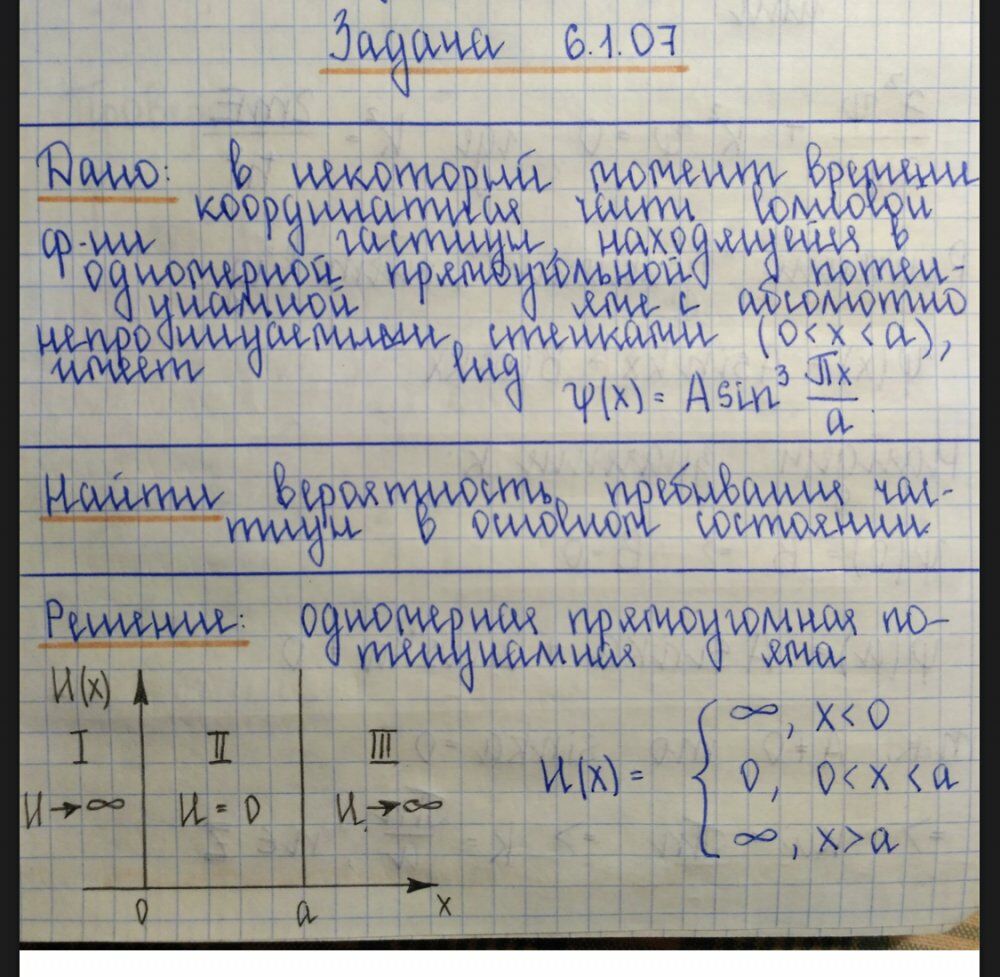 Задача 6.1.07
Дано: в некоторый момент времени
координатная часть волновой
ф-ии частицы, находящейся в
одномерной прямоугольной потен-
циальной яме с абсолютно
непроницаемыми стенками (0<x<a),
имеет вид ψ(x) = A sin³ πx/a.
Найти вероятность пребывания час-
тицы в основном состоянии.
Решение: одномерная прямоугольная по-
тенциальная яма
U(x)
I II III
U→∞ U = 0 U→∞
0 a x
U(x) = { ∞, x<0
0, 0<x<a
∞, x>a